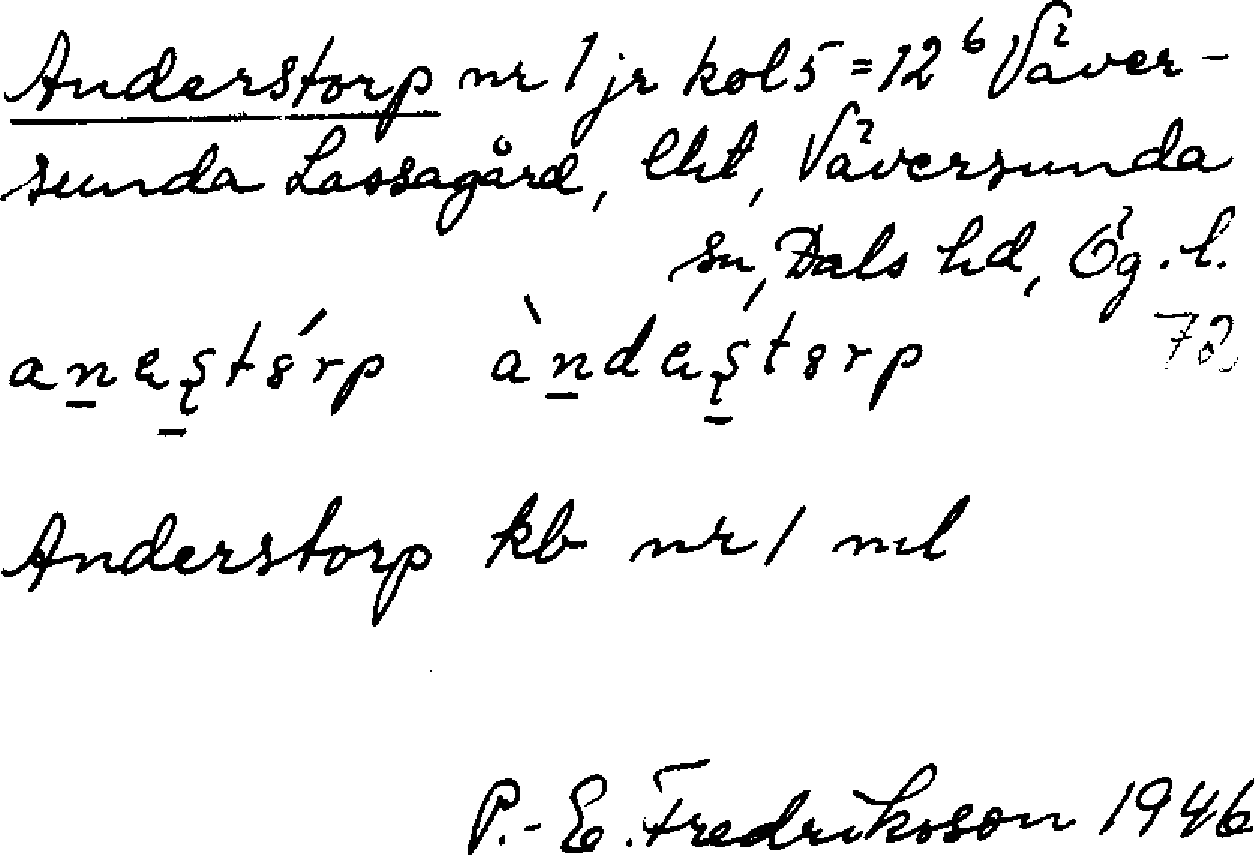 Anderstorp nr 1 jr kol 5 = 12⁶ Väver-
sunda Lassagård, lht, Väversunda
sn, Dals hd, Ög. l.
78
Anderstorp kb nr 1 ml
P.-E. Fredriksson 1946